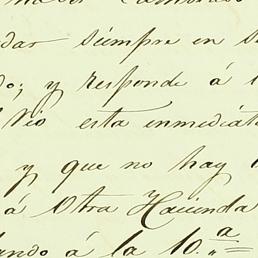 dar siempre en s
do; y responde á l
Vio esta inmediat
y que no hay
á Otra Hacienda
ando á la 10.ª =